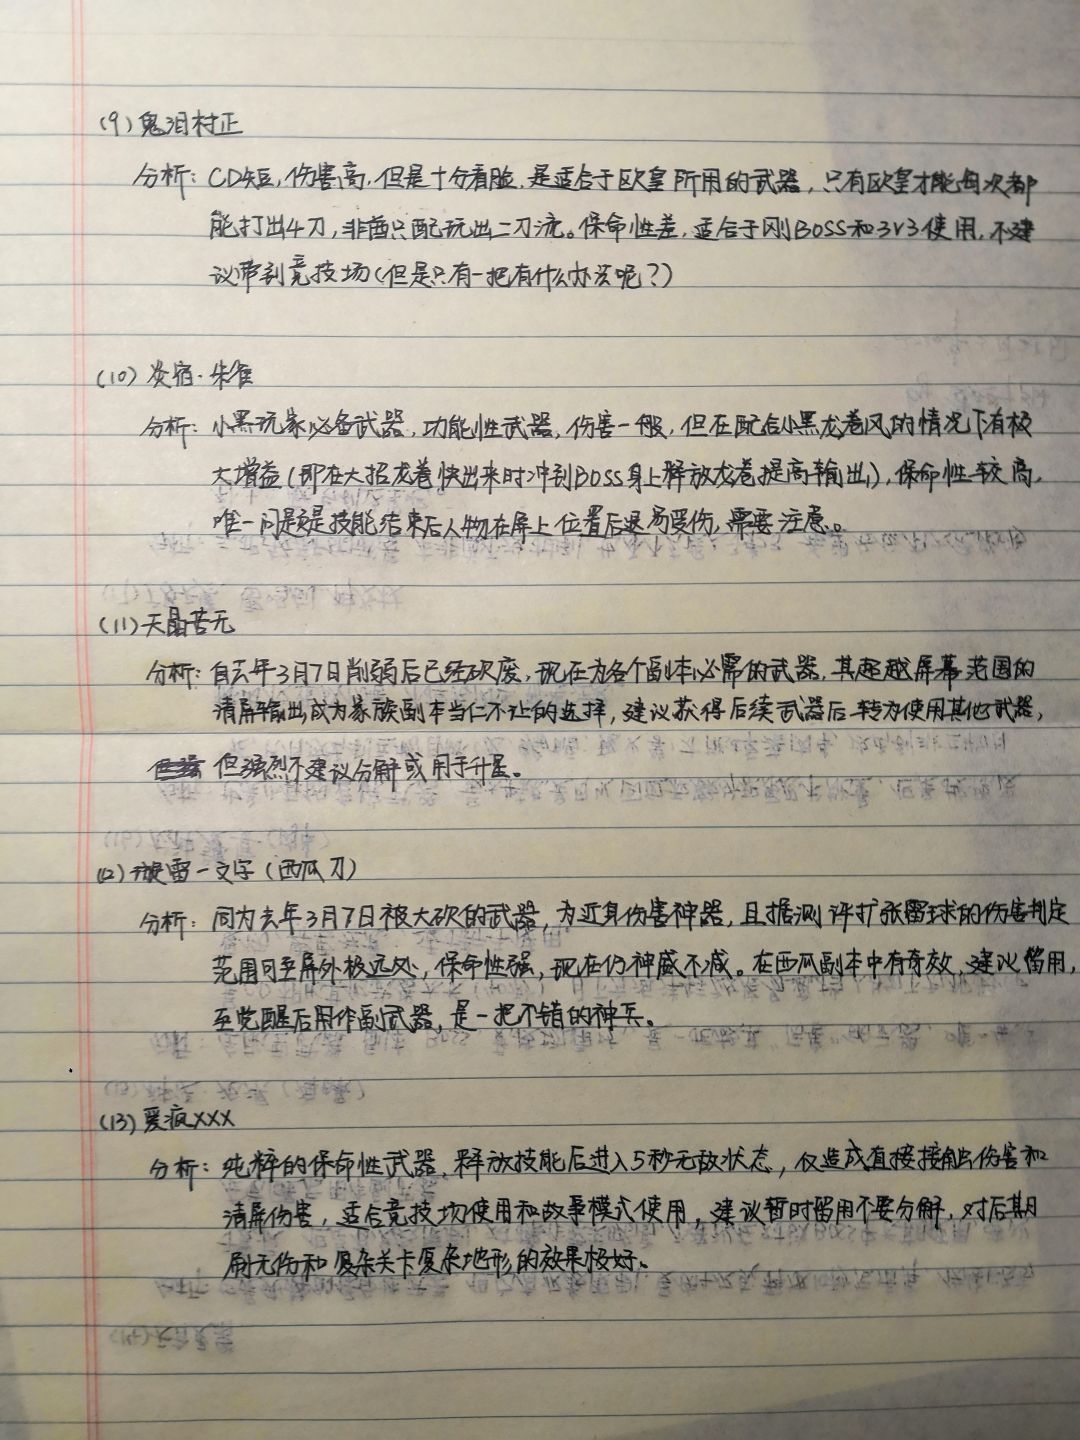 (9) 鬼泪村正
分析：CD短，伤害高，但是十分看脸，是适合于欧皇所用的武器，只有欧皇才能每次都
能打出4刀，非酋只配玩出二刀流。保命性差，适合于刚BOSS和3V3使用，不建
议带到竞技场（但是只有一把有什么办法呢？）
(10) 炎宿·朱雀
分析：小黑玩家必备武器，功能性武器，伤害一般，但在配合小黑龙卷风的情况下有极
大增益（即在大招龙卷快出来时冲到BOSS身上释放龙卷提高输出），保命性较高，
唯一问题是技能结束后人物在屏上位置后退易受伤，需要注意。
(11) 天晶苦无
分析：自去年3月7日削弱后已经砍废，现在为各个副本必需的武器，其超越屏幕范围的
清屏输出成为家族副本当仁不让的选择，建议获得后续武器后转为使用其他武器，
但强烈不建议分解或用于升星。
(12) 漩雷一文字（西瓜刀）
分析：同为去年3月7日被大砍的武器，为近身伤害神器，且据测评扩张雷球的伤害判定
范围可至屏外极远处，保命性强，现在仍神威不减。在西瓜副本中有奇效，建议留用，
至觉醒后用作副武器，是一把不错的神兵。
(13) 爱疯XXX
分析：纯粹的保命性武器，释放技能后进入5秒无敌状态，仅造成直接接触伤害和
清屏伤害，适合竞技场使用和故事模式使用，建议暂时留用不要分解，对后期
刷无伤和复杂关卡复杂地形的效果极好。